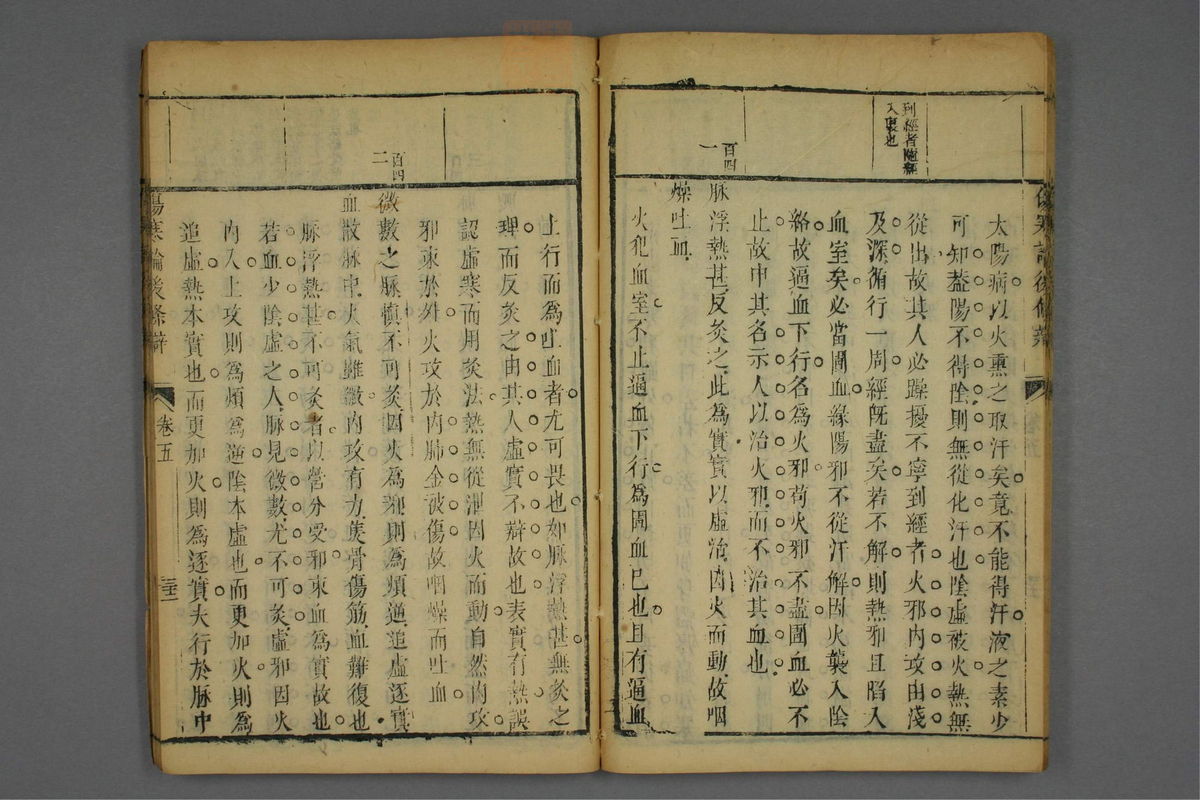 到經者隨經
入裏也
太陽病以火熏之取汗矣竟不能得汗液之素少
可知蓋陽不得陰則無從化汗也陰虛被火熱無
從出故其人必躁擾不寧到經者火邪內攻由淺
及深循行一周經旣盡矣若不解則熱邪且陷入
血室矣必當圊血緣陽邪不從汗解因火襲入陰
絡故逼血下行名爲火邪苟火邪不盡圊血必不
止故申其名示人以治火邪而不治其血也
百四
一
脉浮熱甚反灸之此爲實實以虛治因火而動故咽
燥吐血
火犯血室不止逼血下行爲圊血已也且有逼血
上行而爲吐血者尤可畏也如脉浮熱甚無灸之
理而反灸之由其人虛實不辯故也表實有熱誤
認虛寒而用灸法熱無從泄因火而動自然內攻
邪束於外火攻於內肺金被傷故咽燥而吐血
百四
二
微數之脉愼不可灸因火爲邪則爲煩逆追虛逐實
血散脉中火氣雖微內攻有力焦骨傷筋血難復也
脉浮熱甚不可灸者以營分受邪束血爲實故也
若血少陰虛之人脉見微數尤不可灸虛邪因火
內入上攻則爲煩爲逆陰本虛也而更加火則爲
追虛熱本實也而更加火則爲逐實夫行於脉中
傷寒論後條辯
卷五